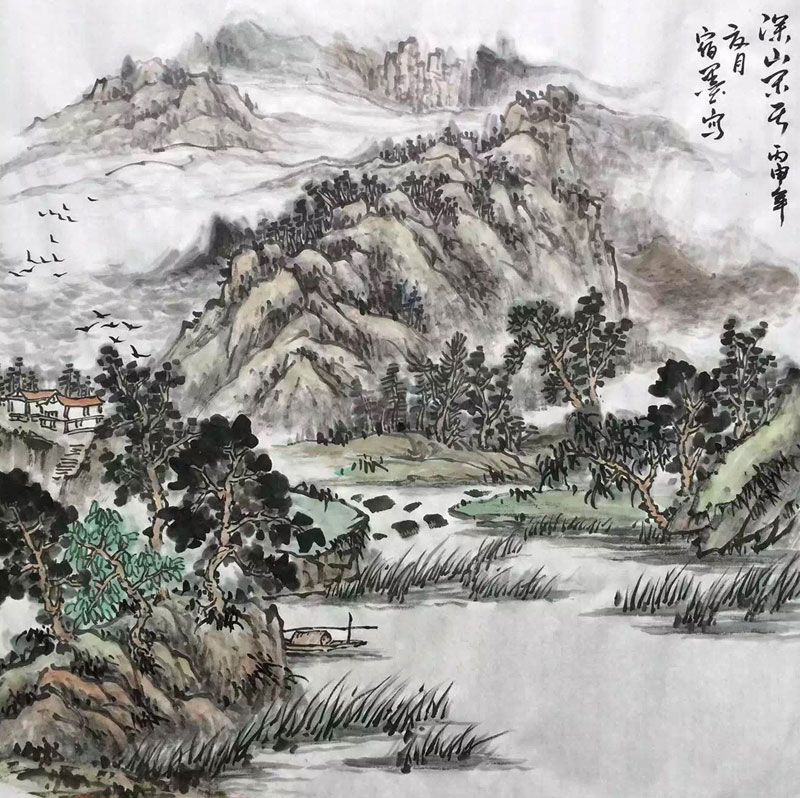 深山不居丙申年
夏月
宿墨写